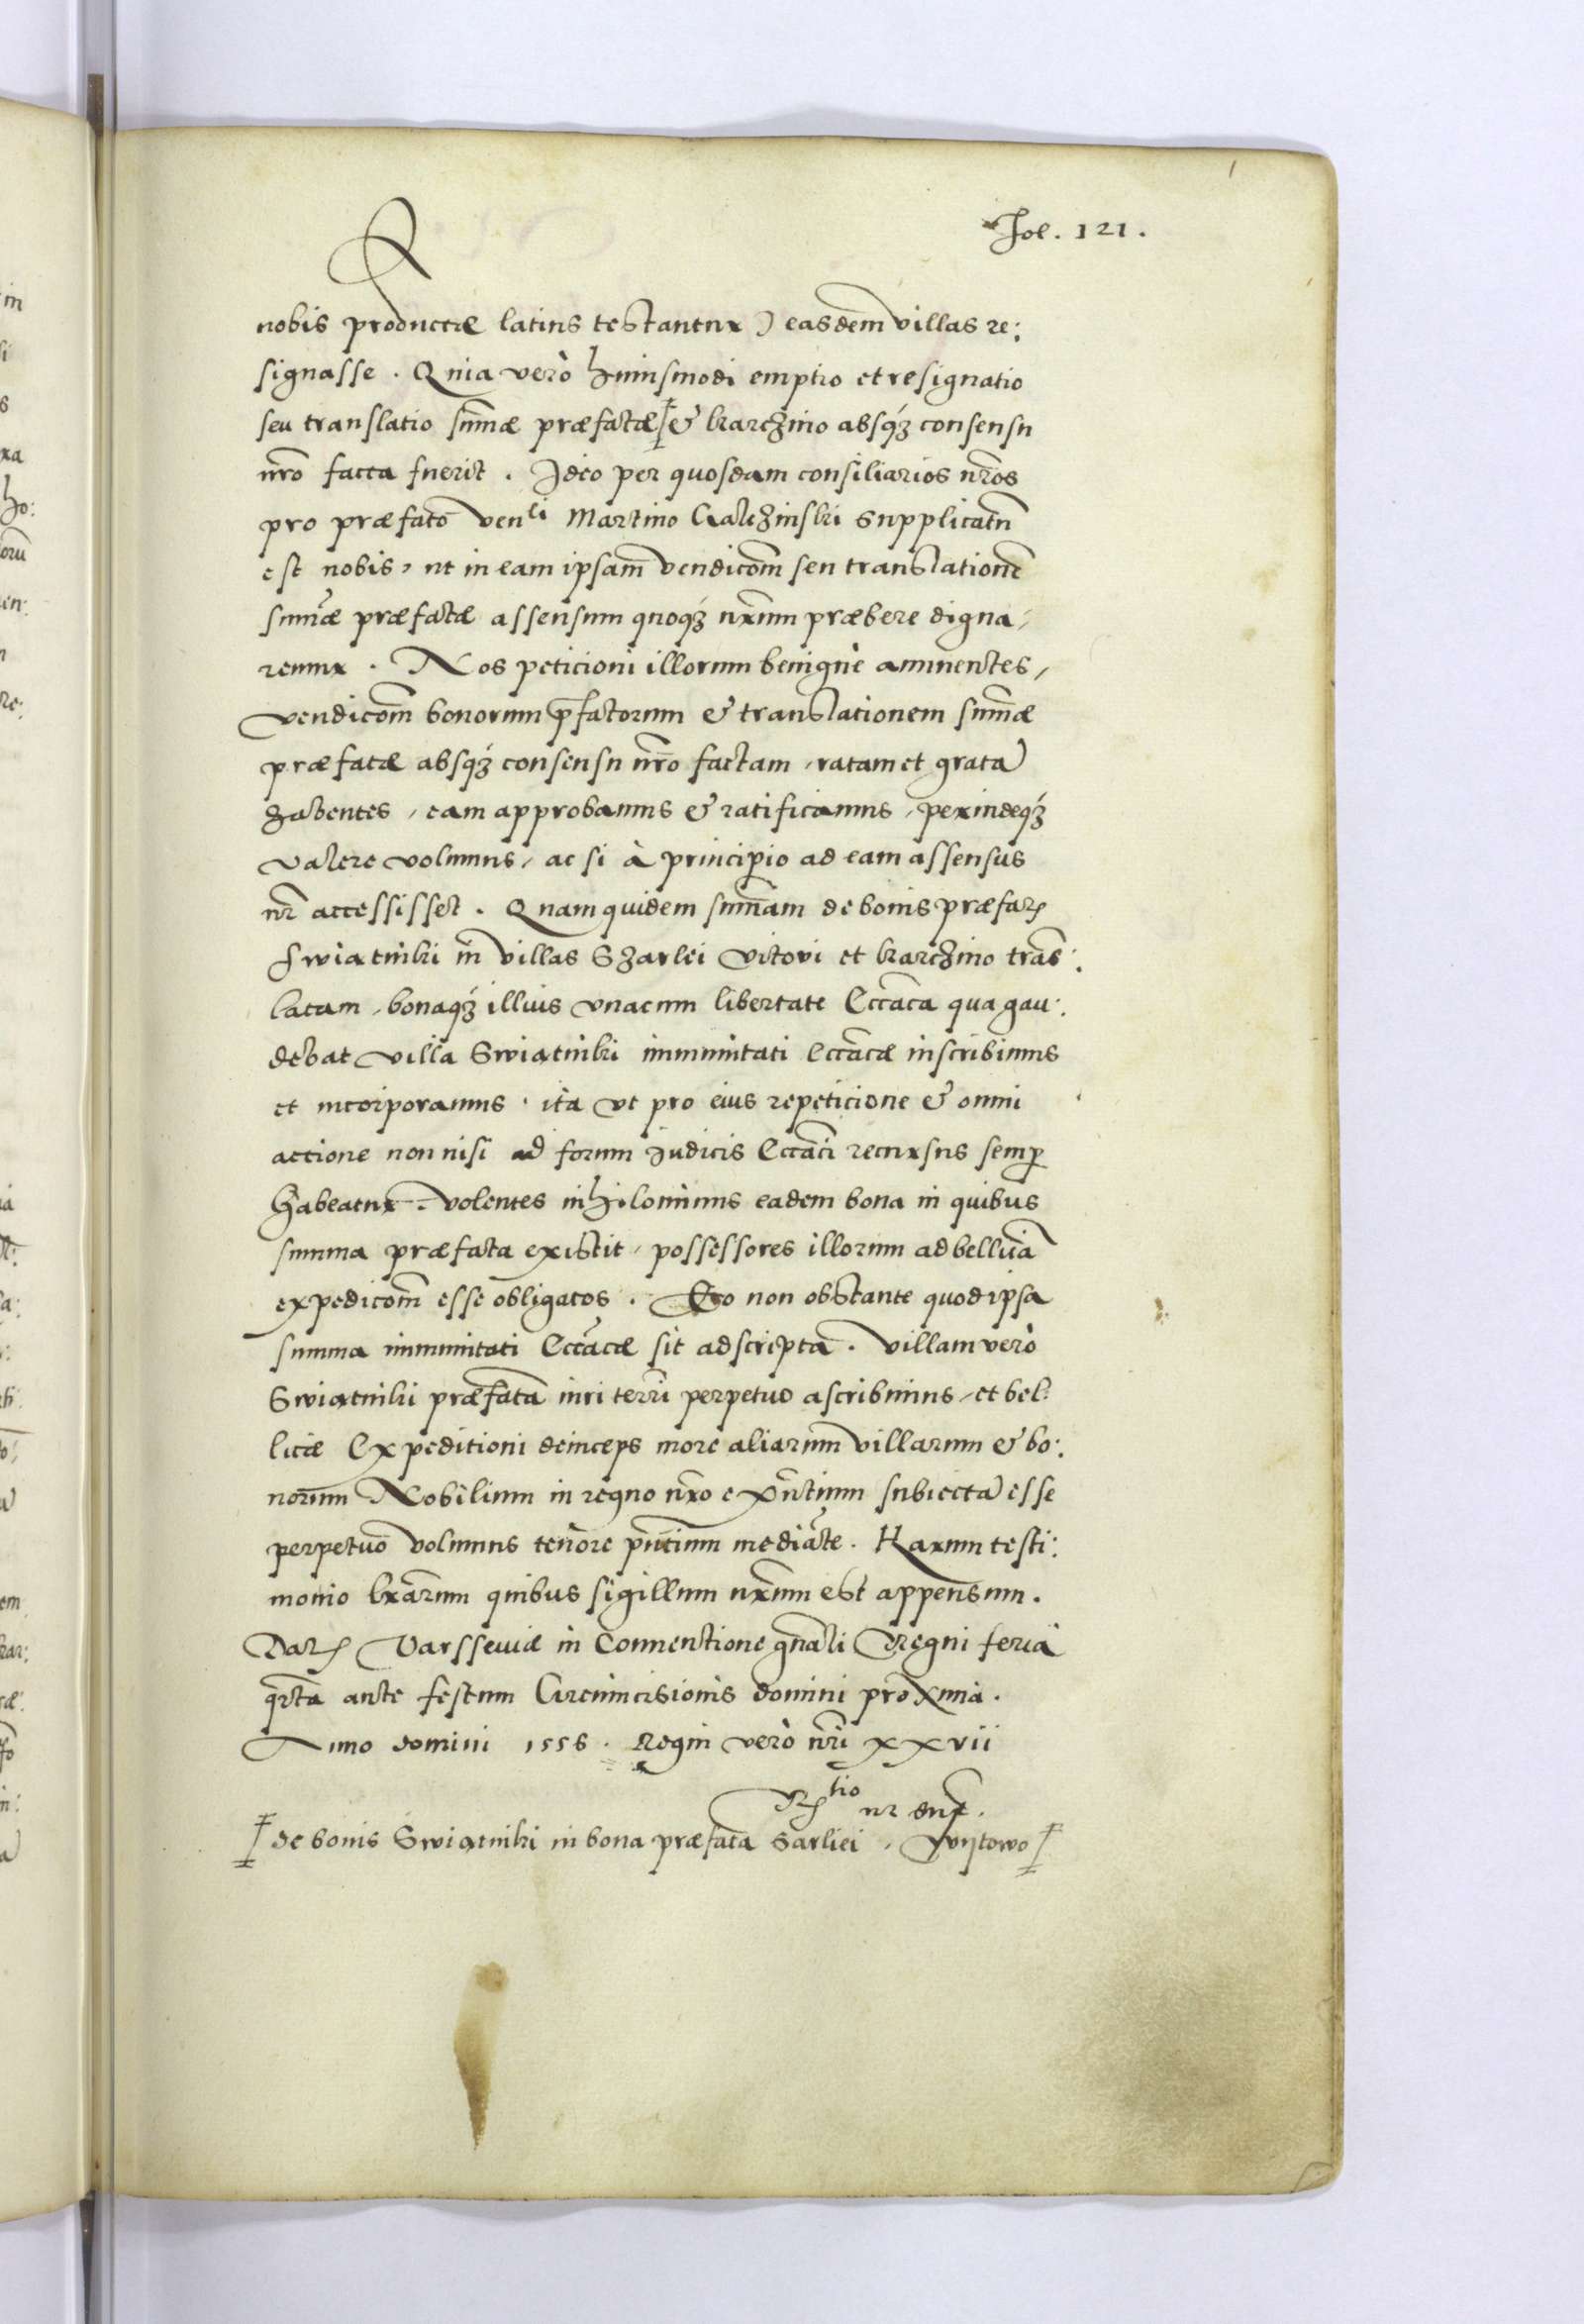 Fol. 121.
nobis productæ latius testantur) easdem villas re:
signasse. Quia verò huiusmodi emptio et resignatio
seu translatio sum̃æ præfatæ ‡ & karczmo absq́ꝫ consensu
nr̃o facta fuerit. Ideo per quosdam consiliarios nr̃os
pro præfato venli Martino Galczinski supplicatũ
est nobis, ut in eam ipsam vendicõm seu translationẽ
sum̃æ præfatæ assensum quoq́ꝫ nr̃um præbere digna,
remur. Nos peticioni illorum benignè annuentes,
vendicõm bonorum p̃factorum & translationem sum̃æ
præfatæ absq́ꝫ consensu nr̃o factam, ratam et gratã
habentes, eam approbamus & ratificamus, perindeq́ꝫ
valere volumus, ac si à principio ad eam assensus
nr̃ accessisset. Quam quidem sum̃am de bonis præfat
Swiatniki in villas Szarlei Vitovi et karczmo trãs:
latam, bonaq́ꝫ illius vnacum libertate Ecclãca qua gau:
debat villa Swiatniki immunitati Ecclãcæ inscribimus
et incorporamus, ita vt pro eius repeticione & omni
actione non nisi ad forum iudicis Ecclãci recursus semꝑ
habeatur. volentes nihilominus eadem bona in quibus
summa præfata existit, possessores illorum ad bellicã
expedicõm esse obligatos. Eo non obstante quod ipsa
summa immunitati Ecclãcæ sit adscripta. Villam verò
Swiatniki præfatã iuri terrr̃i perpetuo ascribimus, et bel:
licæ Expeditioni deinceps more aliarum villarum & bo:
norum Nobilium in regno nr̃o exñtium subiectã esse
perpetuò volumus tenore p̃ntium mediãte. Harum testi:
monio lr̃arum quibus sigillum nr̃um est appensum.
Dat Varsseuiæ in Conuentione gñali Regni feria
qr̃ta ante festum Circumcisionis domini proxima.
Anno domini 1556. Regni verò nr̃i xxvii
‡ de bonis Swiatniki in bona præfata Sarliei, Wijtowo ‡